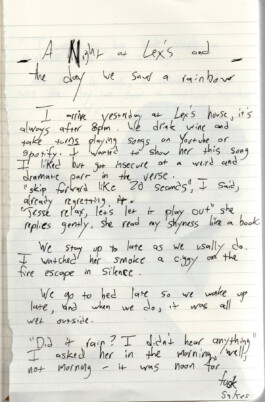 - A Night at Lex's and -
the day we saw a rainbow
I arrive yesterday at Lex's house, it's
always after 8pm. We drak wine and
take turns playing songs on Youtube or
Spotify. I wanted to show her this song
I liked but got insecure at a weird and
dramatic part in the verse.
"skip forward like 20 seconds", I said,
already regretting it.
"Jesse relax, let's let it play out" she
replies gently. She read my shyness like a book
We stay up to late as we usally do.
I watched her smoke a ciggy on the
fire escape in silence.
We go to bed late so we wake up
late, and when we do, it was all
wet outside.
"Did it rain? I didn't hear anything"
I asked her in the morning, well,
not morning - it was noon for
fuck
sakes